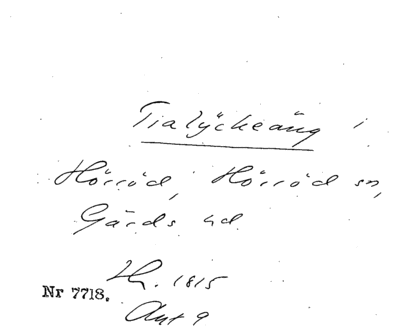 Tialyckeäng i
Hörröd, Hörröd sn,
Gärds hd
1815
Nr 7718.
Akt 9